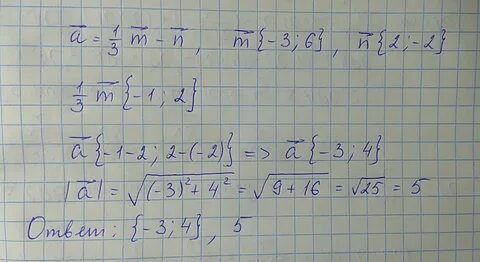 a⃗ = 1/3 m⃗ - n⃗ , m⃗{-3; 6} , n⃗{2; -2}
1/3 m⃗{-1; 2}
a⃗{-1-2; 2-(-2)} => a⃗{-3; 4}
|a⃗| = √((-3)² + 4²) = √(9 + 16) = √25 = 5
Ответ: {-3; 4} , 5